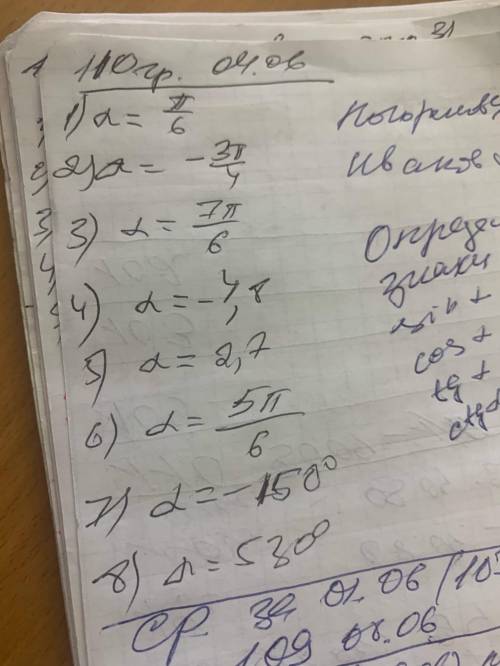 110гр. 04.06
1) α = π/6
2) α = -3π/4
3) α = 7π/6
4) α = -4,8
5) α = 2,7
6) α = 5π/6
7) α = -150°
8) α = 530°
Иванов
Опреде
знаки
sin
cos
tg
ctg
СР за 01.06
109 01.06